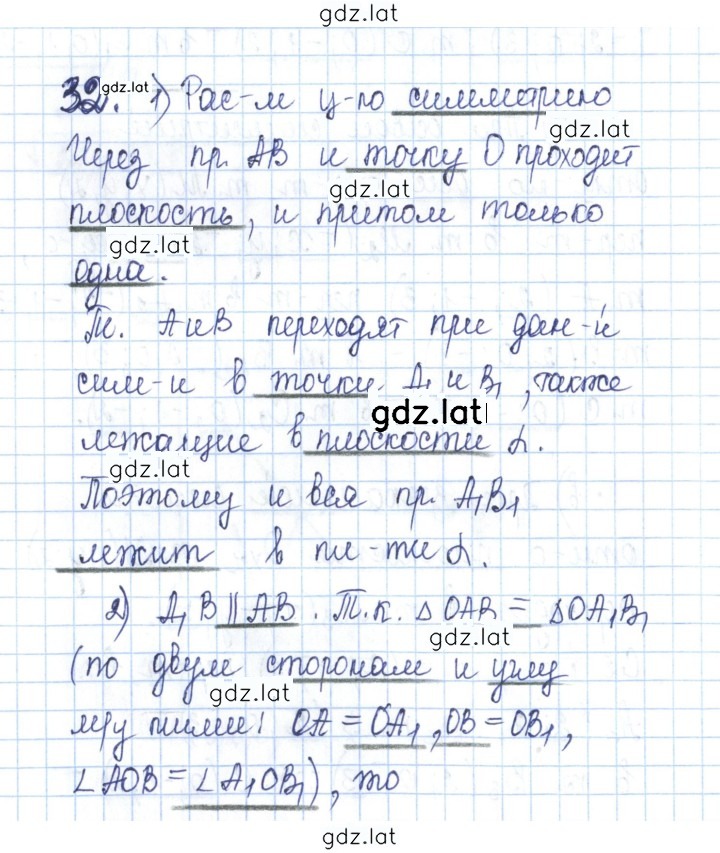 gdz.lat
32. gdz.lat 1) Рас-м ц-ю симметрию
gdz.lat
Через пр. AB и точку O проходит
gdz.lat
плоскость, и притом только
gdz.lat
одна.
Т. A и B переходят при дан-й
сим-и в точки A₁ и B₁, также
gdz.lat
лежащие в плоскости α.
gdz.lat
Поэтому и вся пр. A₁B₁
лежит в пл-ти α.
2) A₁B || AB. Т.к. △OAB = △OA₁B₁
gdz.lat
(по двум сторонам и углу
gdz.lat
м/у ними! OA = OA₁, OB = OB₁,
∠AOB = ∠A₁OB₁), то
gdz.lat